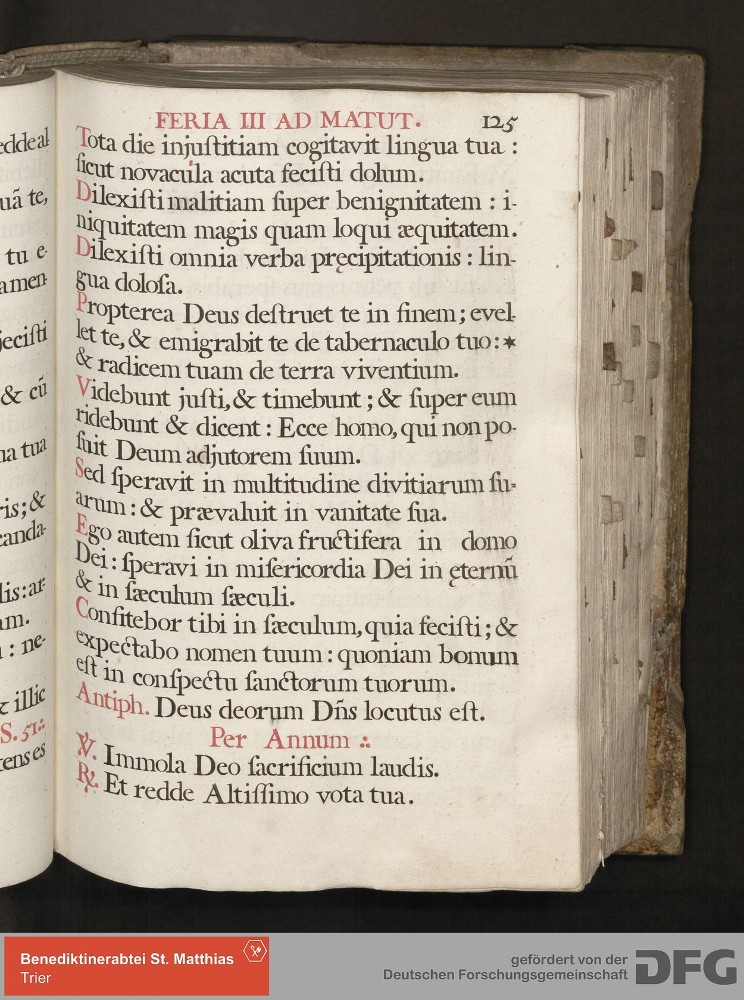 eddeal
uã te,
tu e-
amen
jecisti
& cũ
na tua
ris; &
canda-
lis: ar-
am.
: ne-
& illic
S. 51.
tens es
FERIA III AD MATUT. 125
Tota die injuſtitiam cogitavit lingua tua :
ſicut novacula acuta feciſti dolum.
Dilexiſti malitiam ſuper benignitatem : i-
niquitatem magis quam loqui æquitatem.
Dilexiſti omnia verba pręcipitationis : lin-
gua doloſa.
Propterea Deus deſtruet te in finem; evel-
let te, & emigrabit te de tabernaculo tuo: *
& radicem tuam de terra viventium.
Videbunt juſti, & timebunt ; & ſuper eum
ridebunt & dicent : Ecce homo, qui non po-
ſuit Deum adjutorem ſuum.
Sed ſperavit in multitudine divitiarum ſu-
arum : & prævaluit in vanitate ſua.
Ego autem ſicut oliva fructifera in domo
Dei : ſperavi in miſericordia Dei in ęternũ
& in ſæculum ſæculi.
Confitebor tibi in ſæculum, quia feciſti ; &
expectabo nomen tuum : quoniam bonum
eſt in conſpectu ſanctorum tuorum.
Antiph. Deus deorum Dñs locutus eſt.
Per Annum ∴
℣. Immola Deo ſacrificium laudis.
℟. Et redde Altiſſimo vota tua.
Benediktinerabtei St. Matthias
Trier
gefördert von der
Deutschen Forschungsgemeinschaft DFG